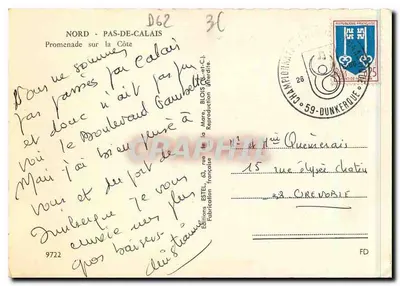 D62 3€
NORD - PAS-DE-CALAIS
Promenade sur la Côte
Nous ne sommes
pas passés par Calais
et donc n'ait pas pu
voir le Boulevard Gambetta
Mais j'ai bien pensé à
vous et du port de
Dunkerque je vous
envoie mes plus
gros baisers
Christianne
9722
Editions ESTEL, 62, rue de la Marne, BLOIS
Fabrication française - Reproduction interdite
REPUBLIQUE FRANÇAISE
CHAMPIONNATS
28
59-DUNKERQUE
Mr et Mme Quémerais
15 rue Elysée Chatin
38 GRENOBLE
FD
CPARAMA.COM